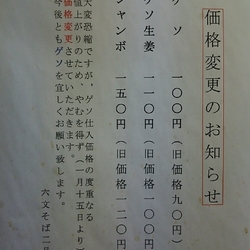 価格変更のお知らせ
ゲソ 一〇〇円(旧価格九〇円)
ゲソ生姜 一一〇円(旧価格一〇〇円
ジャンボ 一五〇円(旧価格一二〇円
大変恐縮ですが、ゲソ仕入価格の度重なる
値上がりのため、やむを得ず(一月十五日より
価格変更させていただきます。
今後ともゲソを宜しくお願い致します。
六文そば二号